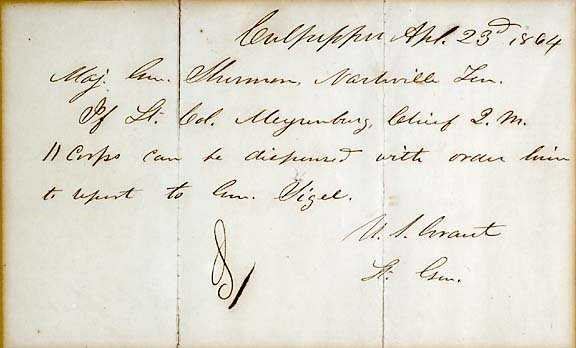 Culpepper Apl. 23d 1864
Maj. Gen. Sherman, Nashville Ten.
If Lt. Col. Meysenburg, Chief Q.M.
11 Corps can be dispensed with order him
to report to Gen. Sigel.
U. S. Grant
Lt. Gen.